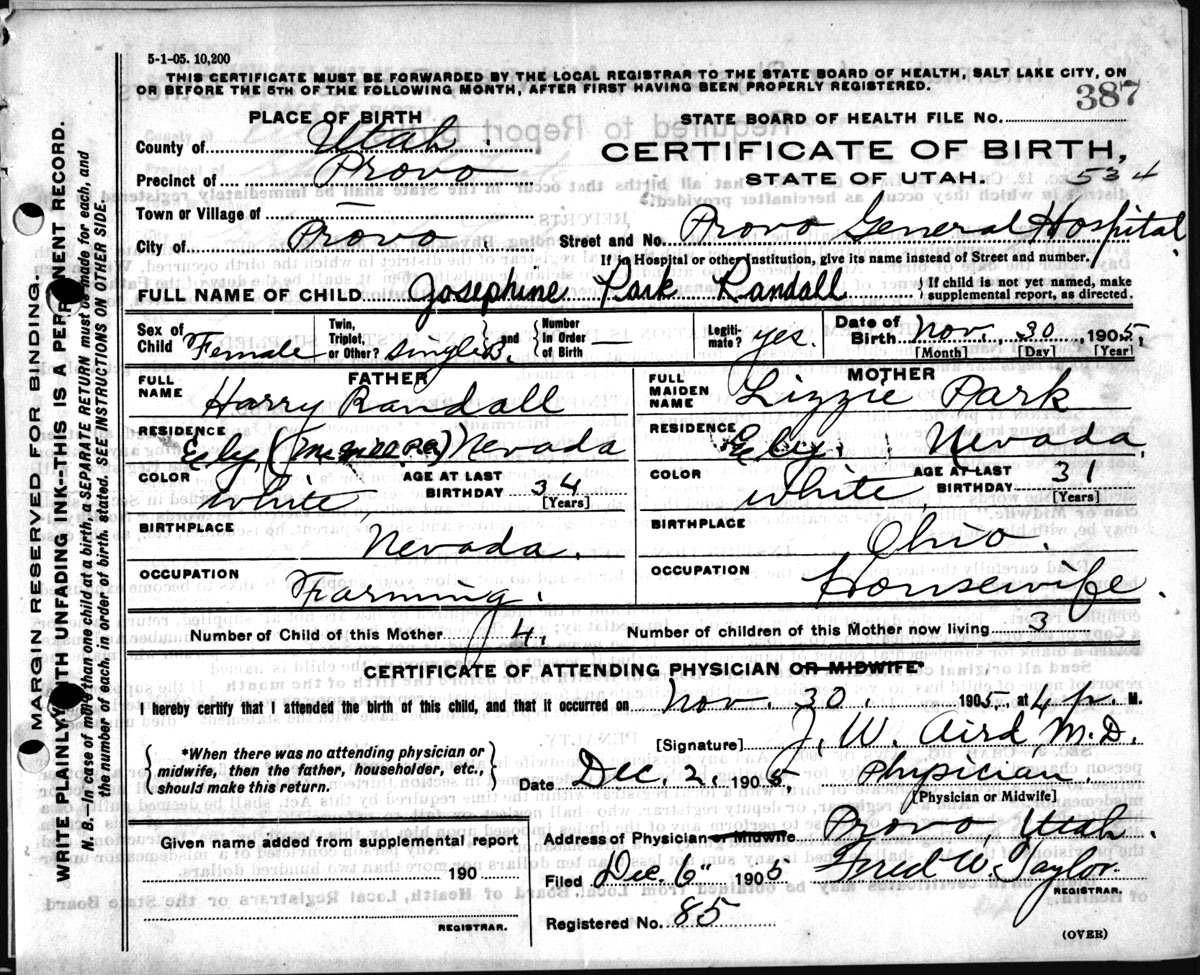 5-1-05. 10,200
THIS CERTIFICATE MUST BE FORWARDED BY THE LOCAL REGISTRAR TO THE STATE BOARD OF HEALTH, SALT LAKE CITY, ON
OR BEFORE THE 5TH OF THE FOLLOWING MONTH, AFTER FIRST HAVING BEEN PROPERLY REGISTERED.
387
PLACE OF BIRTH
STATE BOARD OF HEALTH FILE No.
County of Utah
CERTIFICATE OF BIRTH,
Precinct of Provo
STATE OF UTAH. 534
Town or Village of —
City of Provo Street and No. Provo General Hospital
If in Hospital or other Institution, give its name instead of Street and number.
FULL NAME OF CHILD Josephine Park Randall { If child is not yet named, make
supplemental report, as directed.
Sex of Child Female
Twin, Triplet, or Other? single B. and Number in Order of Birth —
Legitimate? yes.
Date of Birth Nov. 30 1905.
[Month] [Day] [Year]
FATHER
FULL NAME Harry Randall
RESIDENCE Ely, Nevada
COLOR White AGE AT LAST BIRTHDAY 34
[Years]
BIRTHPLACE Nevada.
OCCUPATION Farming.
MOTHER
FULL MAIDEN NAME Lizzie Park
RESIDENCE Ely, Nevada
COLOR White AGE AT LAST BIRTHDAY 31
[Years]
BIRTHPLACE Ohio.
OCCUPATION Housewife.
Number of Child of this Mother 4.
Number of children of this Mother now living 3
CERTIFICATE OF ATTENDING PHYSICIAN OR MIDWIFE*
I hereby certify that I attended the birth of this child, and that it occurred on Nov. 30. 1905. at 4 p. M.
{ *When there was no attending physician or
midwife, then the father, householder, etc.,
should make this return. }
[Signature] J. W. Aird M.D.
Date Dec. 2. 1905, Physician.
[Physician or Midwife]
Given name added from supplemental report
190
REGISTRAR.
Address of Physician or Midwife Provo, Utah.
Filed Dec. 6" 1905 Fred W. Taylor.
REGISTRAR.
Registered No. 85
(OVER)
MARGIN RESERVED FOR BINDING.
WRITE PLAINLY WITH UNFADING INK--THIS IS A PERMANENT RECORD.
N. B.--In case of more than one child at a birth, a SEPARATE RETURN must be made for each, and
the number of each, in order of birth, stated. SEE INSTRUCTIONS ON OTHER SIDE.